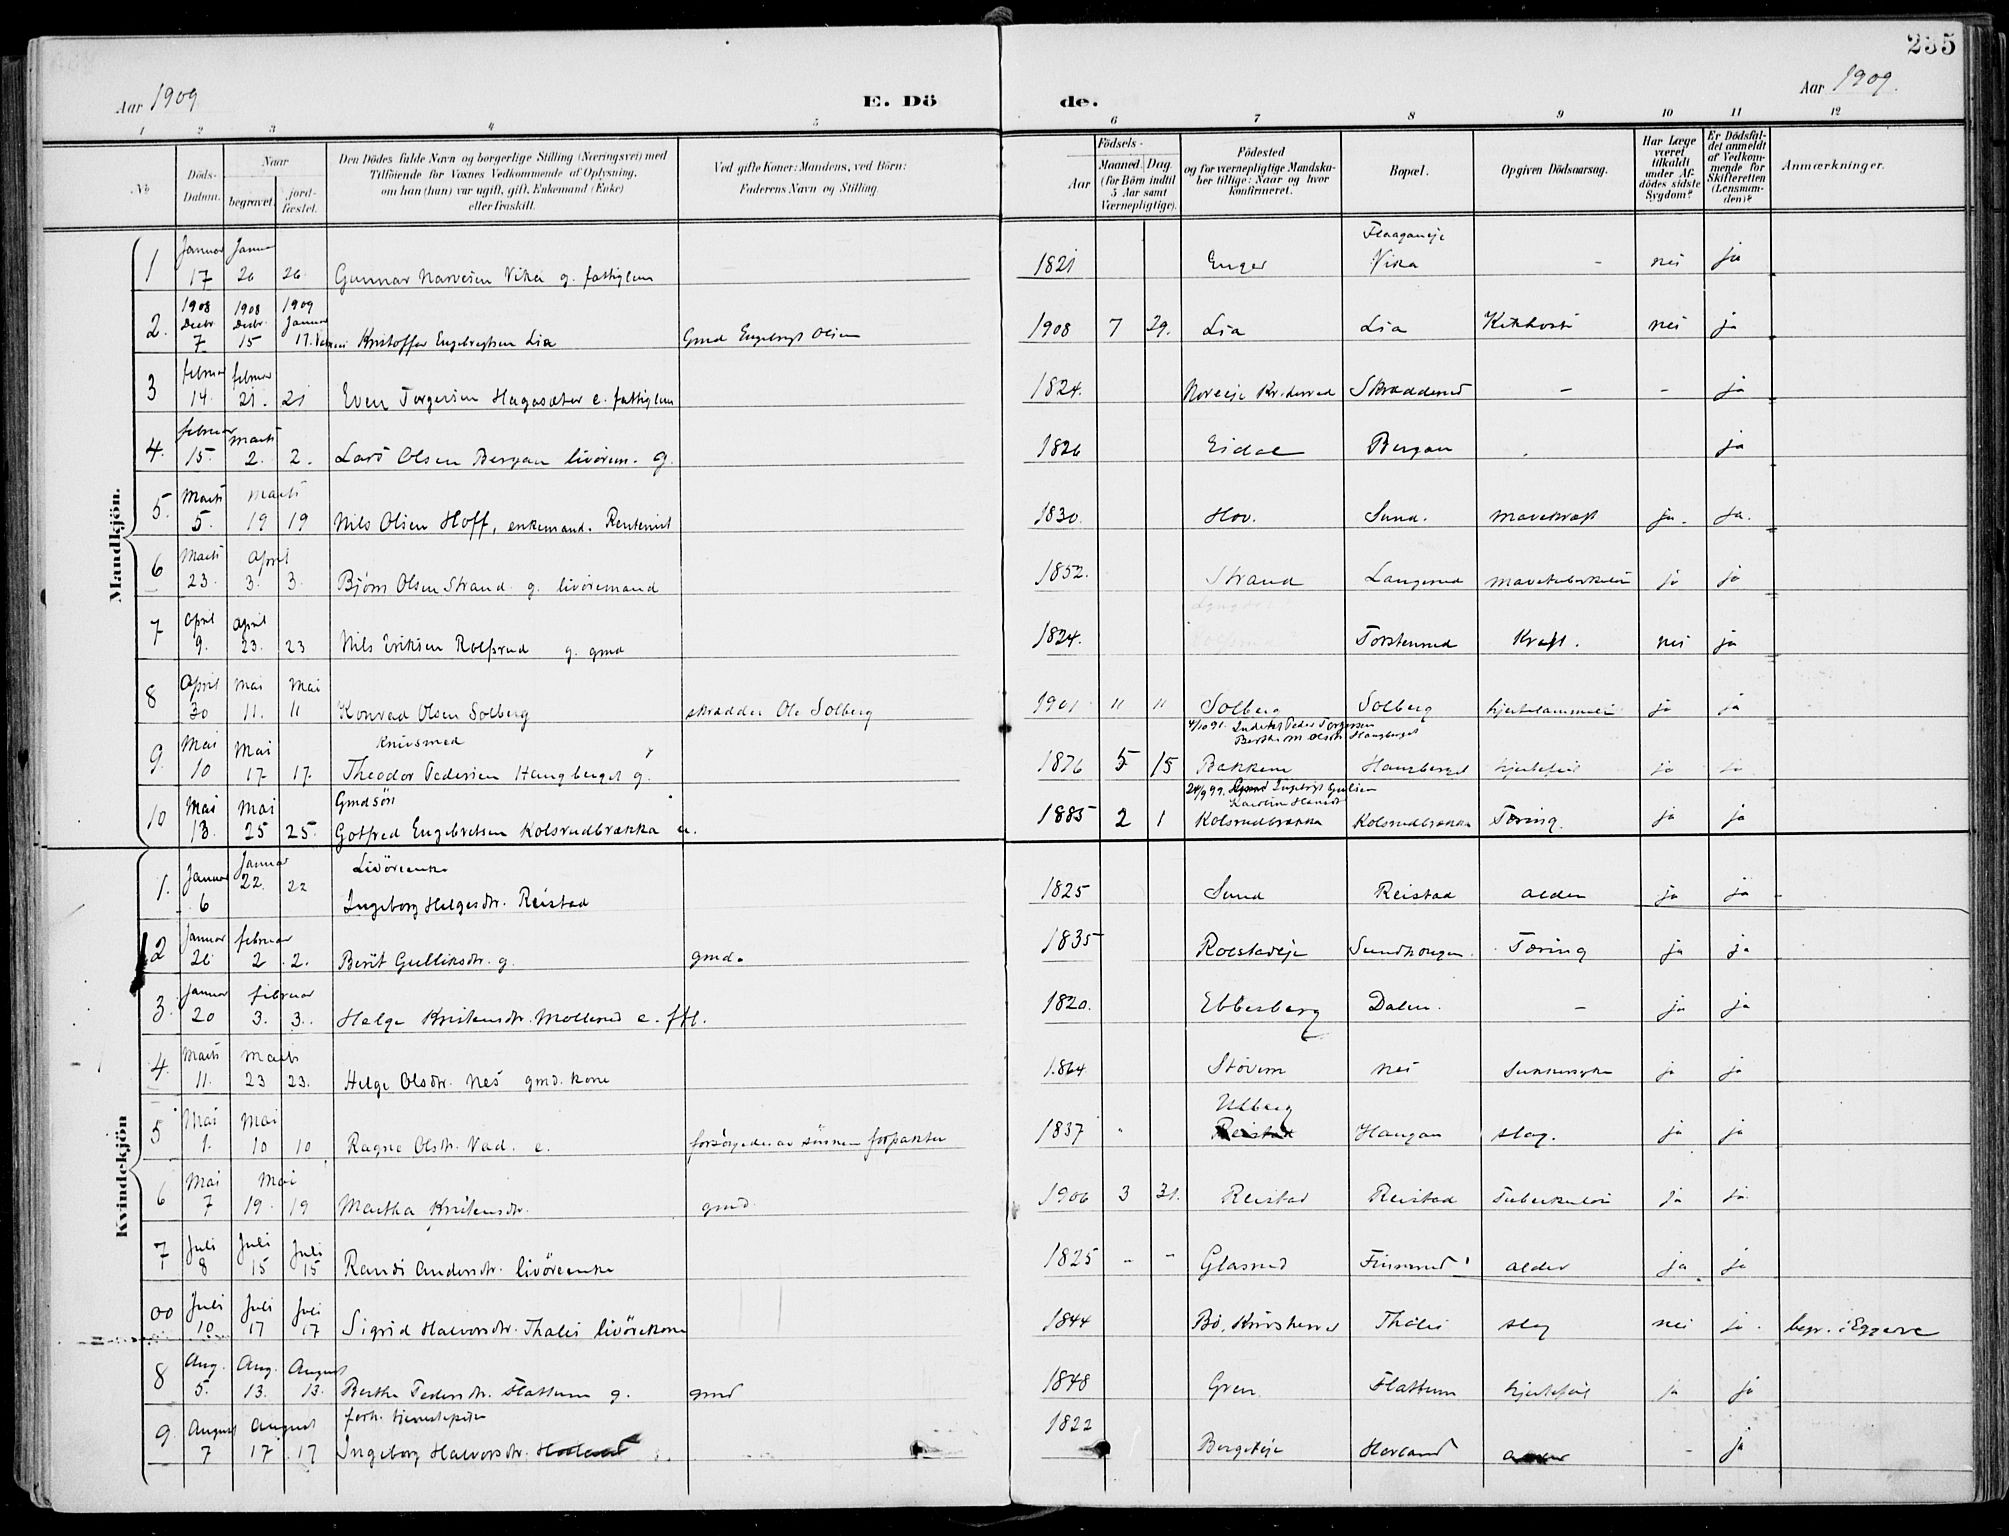 235
Aar 1909 E. Dö
de. Aar 1909.
1 2 3 4 5 6 7 8 9 10 11 12
No
Döds-Datum.
Naar begravet. jord-fæstet.
Den Dödes fulde Navn og borgerlige Stilling (Næringsvei) med Tilföiende for Voxnes Vedkommende af Oplysning, om han (hun) var ugift, gift, Enkemand (Enke) eller fraskilt.
Ved gifte Koner: Mandens, ved Börn: Faderens Navn og Stilling.
Födsels- Aar Maaned. Dag. (for Börn indtil 5 Aar samt Værnepligtige).
Födested og for værnepligtige Mandskaber tillige: Naar og hvor konfirmeret.
Bopæl.
Opgiven Dödsaarsag.
Har Læge været tilkaldt under Afdödes sidste Sygdom?
Er Dödsfaldet anmeldt af Vedkommende for Skifteretten (Lensmanden)?
Anmærkninger.
Mandkjön.
1 Januar 17 Januar 26 26 Gunnar Narvesen Vika g. fattiglem 1821 Enger Vika - nei ja
2. 1908 Decbr 7 1908 Decbr. 15 1909 Januar 17. Kristoffer Engebregtsen Lia Gmd Engebregt Olsen 1908 7 29. Lia Lia Kikhoste nei ja
3 februar 14. februar 21. 21 Even Torgersen Hagasæter e. fattiglem 1824. - - ja
4. februar 15. marts 2. 2. Lars Olsen Bergan livörem. g. 1826 Eidal Bergan ja
5. Marts 5. marts 19 19 Nils Olsen Hoff, enkemand. Rentenist 1830. Hov. Sund. mavekræft ja. ja.
6 Marts 23. April 3. 3. Björn Olsen Strand g. livöremand 1852. Strand Langerud ja ja
7 April 9. April 23. 23 Nils Eriksen Rolfsrud g. gmd 1824. Torstenrud Kræft. nei ja
8 April 30 Mai 11. Mai 11 Konrad Olsen Solberg skrædder Ole Solberg 1901 " " Solberg Solberg hjertelammelse ja ja
Knivsmed
9. Mai 10 Mai 17 17. Theodor Pedersen Haugberget g. 1876 5 15 Bakken Haugberget hjertefeil ja ja
Gmdsön
10 Mai 13. Mai 25 25. Gotfred Engebretsen Kolsrudbrækka u. 1885 2 1 Kolsrudbrækka Kolsrudbrækka Tæring. ja ja
Kvindekjön
Livöreenke
1. Januar 6 Januar 22. 22 Ingeborg Helgesdtr. Reistad 1825 Sund Reistad alder ja ja
2 Januar februar 2 2. Berit Gulliksdtr. g. gmd. 1835 Tæring ja ja
3. Januar 20 februar 3. 3. Helge Kristensdtr. e. ffl. 1820. Ebbesberg Dalen. - ja ja
4. Marts 11. Marts 23 23. Helge Olsdtr. Nes gmd. kone 1864 Stövern nes sukkersyke ja ja
5 Mai 1. Mai 10 10 Ragne Olsdtr. Vad. e. forsörgedes av sönnen forpakter 1837 Ulberg Haugan slag. ja ja
6 Mai 7 Mai 19. 19 Martha Kristensdtr. gmd. 1906 3 31. Reistad Reistad Tuberkulose ja ja
7 Juli 8 Juli 15 Juli 15 Randi Andersdtr. livöreenke 1825 - - Glasrud Finnerud alder ja ja
00 Juli 10 Juli 17 Juli 17 Sigrid Halvorsdtr. Thalei livörekone 1844 Bö, Thalei slag nei ja. begr. i Eggerе
8 Aug. 5. Aug. 13. August 13. Berthe Pedersdtr. Flattum g. gmd 1848 Gren. Flattum hjertefeil ja ja
forh. tjenestepike
9. August 7 August 17 17 Ingeborg Halvorsdtr. 1822 Bergseie Hovland - ja